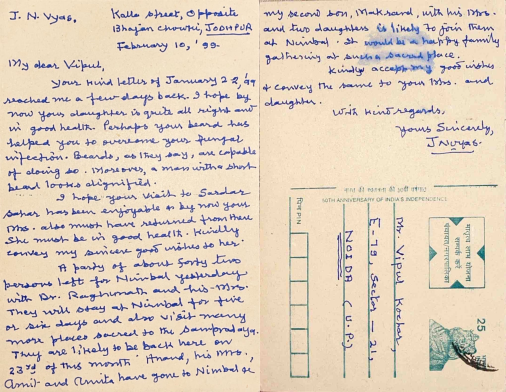 J. N. Vyas.
Kalla Street, Opposite
Bhajan Chowki, JODHPUR
February 10, '99.
My dear Vipul,
Your kind letter of January 22, 99
reached me a few days back. I hope by
now your daughter is quite all right and
in good health. Perhaps your beard has
helped you to overcome your fungal
infection. Beards, as they say, are capable
of doing so. Moreover, a man with a short
beard looks dignified.
I hope your visit to Sardar
sahar has been enjoyable & by now your
Mrs. also must have returned from there
She must be in good health. Kindly
convey my sincere good wishes to her.
A party of about forty two
persons left for Nimbal yesterday
with Dr. Raghunath and his Mrs.
They will stay at Nimbal for five
or six days and also visit many
more places sacred to the Sampradaya.
They are likely to be back here on
23rd of this month. Anand, his Mrs.,
Amit and Amita have gone to Nimbal &
my second son, Makrand, with his Mrs.
and two daughters is likely to join them
at Nimbal. It would be a happy family
gathering at such a sacred place.
Kindly accept my good wishes
& convey the same to your Mrs. and
daughter.
With kind regards,
Yours Sincerely,
J N Vyas.
50TH ANNIVERSARY OF INDIA'S INDEPENDENCE
Mr. Vipul Kochar,
E-79, Sector-21,
NOIDA (U.P.)
पिन PIN
25